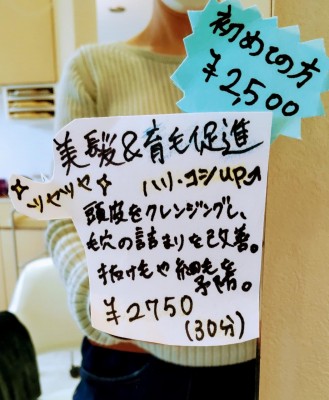 初めての方
¥2,500
美髪&育毛促進
ツヤツヤ
ハリ・コシup↗
頭皮をクレンジングし、
毛穴の詰まりを改善。
抜け毛や細毛を
予防。
¥2750
(30分)